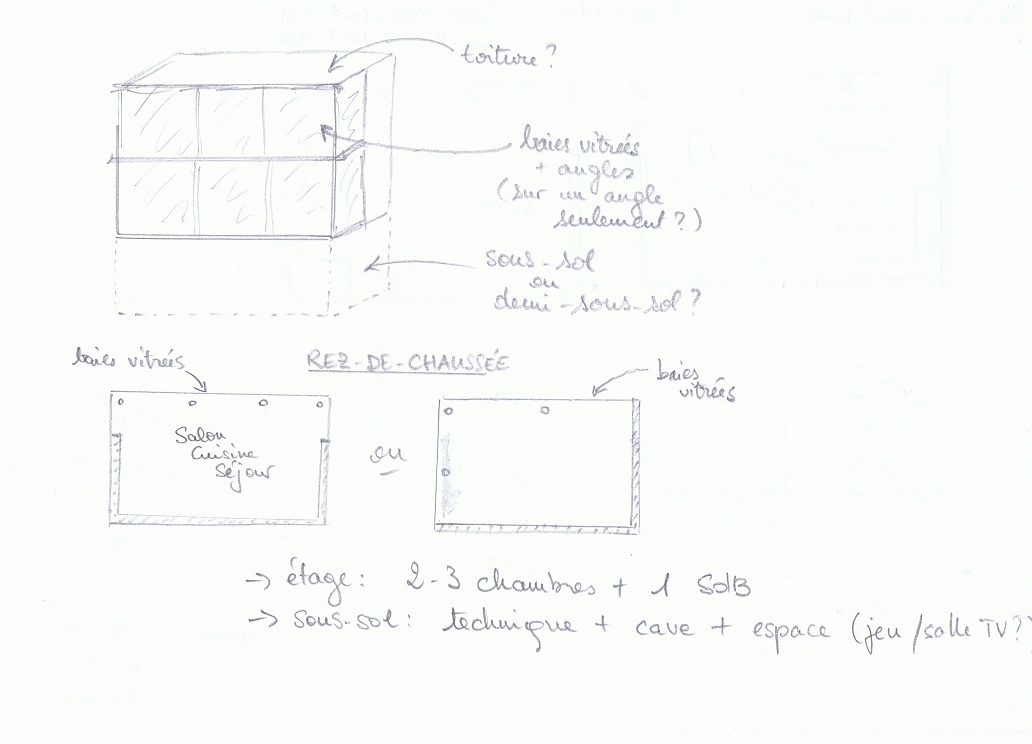 toiture ?
baies vitrées
+ angles
(sur un angle
seulement ?)
sous-sol
ou
demi-sous-sol ?
baies vitrées
REZ-DE-CHAUSSÉE
baies
vitrées
Salon
Cuisine
Séjour
ou
-> étage : 2-3 chambres + 1 SdB
-> sous-sol : technique + cave + espace (jeu/salle TV ?)